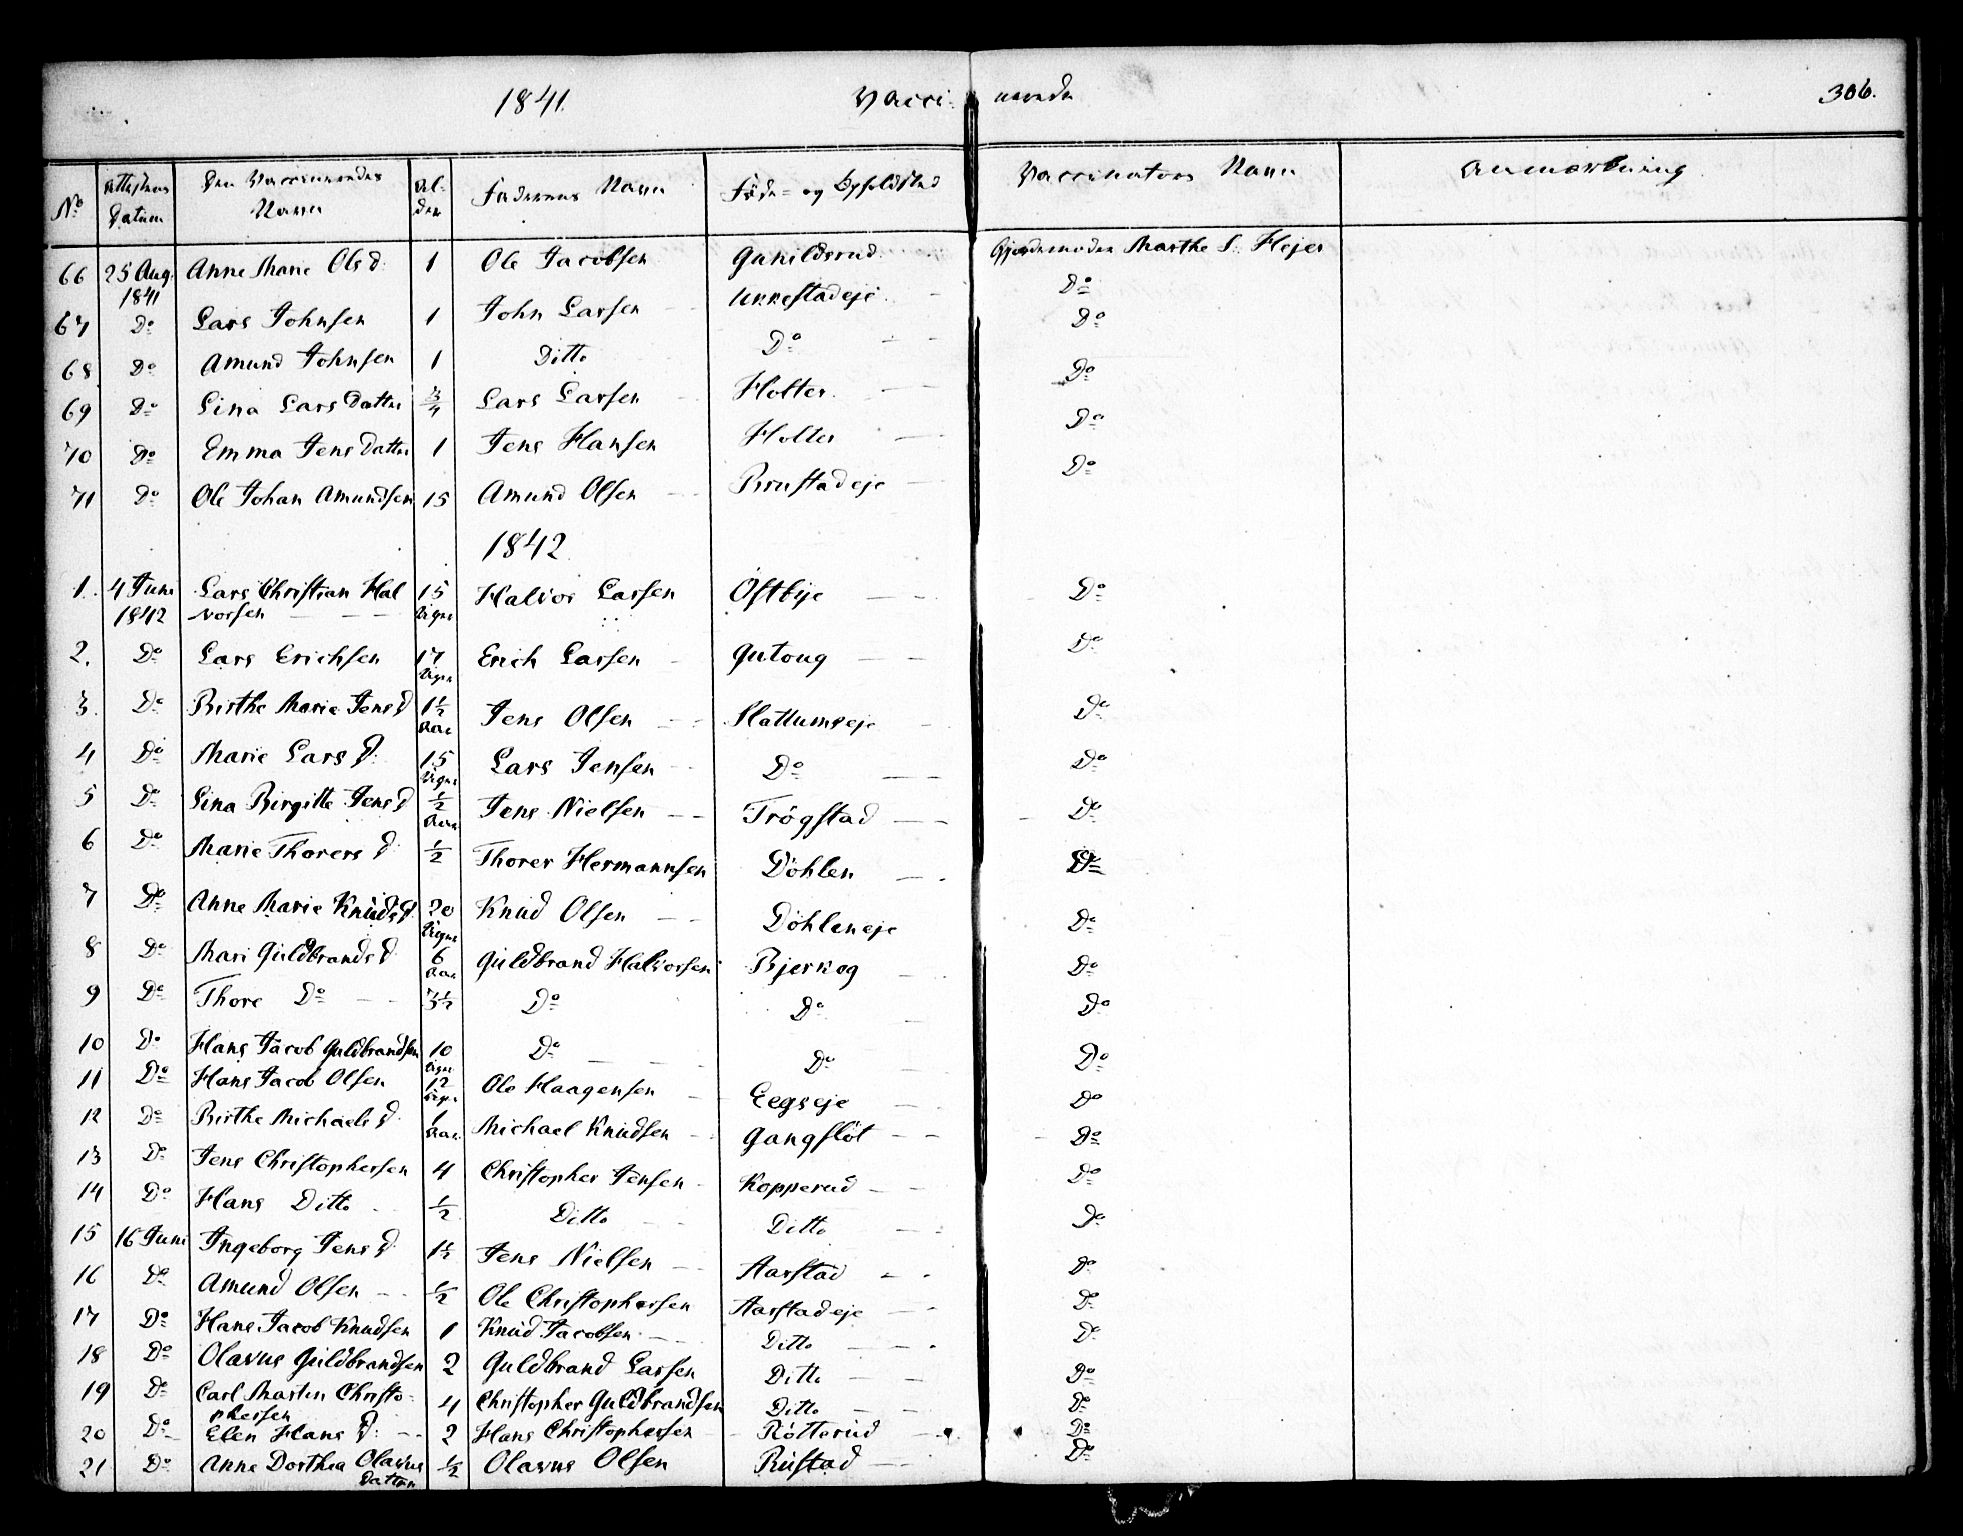 1841. Vacci- nerede 306.
No Attestens Datum Den Vaccineredes Navn Al- der Faderens Navn Føde- og Opholdsted Vaccinators Navn Anmærkning
66 25 Aug. 1841 Anne Marie Ols D. 1 Ole Jacobsen Gunildsrud Gjordemoder Marthe S. Hejer
67 Do Lars Johnsen 1 John Larsen Unnestadeje Do
68 Do Amund Johnsen 1 Ditto Do Do
69 Do Lina Lars Datter 3/4 Lars Larsen Holter Do
70 Do Emma Jens Datter 1 Jens Hansen Holter Do
71 Do Ole Johan Amundsen 15 Amund Olsen Brustadeje Do
1842
1. 4 Juni 1842 Lars Christian Hal vorsen 15 Uger Halvor Larsen Østbye Do
2. Do Lars Erichsen 17 Uger Erich Larsen Gutoug Do
3. Do Birthe Marie Jens D 1½ Aar Jens Olsen Slattumseje Do
4 Do Marie Lars D. 15 Uger Lars Jensen Do Do
5 Do Lina Birgitte Jens D ½ Aar Jens Nielsen Trøgstad Do
6 Do Marie Thorers D. ½ Thorer Hermannsen Døhlen Do
7 Do Anne Marie Knuds D. 20 Uger Knud Olsen Døhleneje Do
8 Do Mari Guldbrands D. 6 Aar Guldbrand Halvorsen Bjerkog Do
9 Do Thore Do 3½ Do Do Do
10 Do Hans Jacob Guldbrandsen 10 Uger Do Do Do
11 Do Hans Jacob Olsen 12 Uger Ole Haagensen Eegseje Do
12 Do Birthe Michaels D. 1 Aar Michael Knudsen Gangfløt Do
13 Do Jens Christophersen 4 Christopher Jensen Kopperud Do
14 Do Hans Ditto ½ Ditto Ditto Do
15 16 Juni Ingeborg Jens D. 1½ Jens Nielsen Aarstad Do
16 Do Amund Olsen ½ Ole Christophersen Aarstadeje Do
17 Do Hans Jacob Knudsen 1 Knud Jacobsen Ditto Do
18 Do Olavus Guldbrandsen 2 Guldbrand Larsen Ditto Do
19 Do Carl Martin Christo- phersen 4 Christopher Guldbrandsen Ditto Do
20 Do Elen Hans D. 2 Hans Christophersen Røtterud Do
21 Do Anne Dorthea Olavus Datter ½ Olavus Olsen Rustad Do